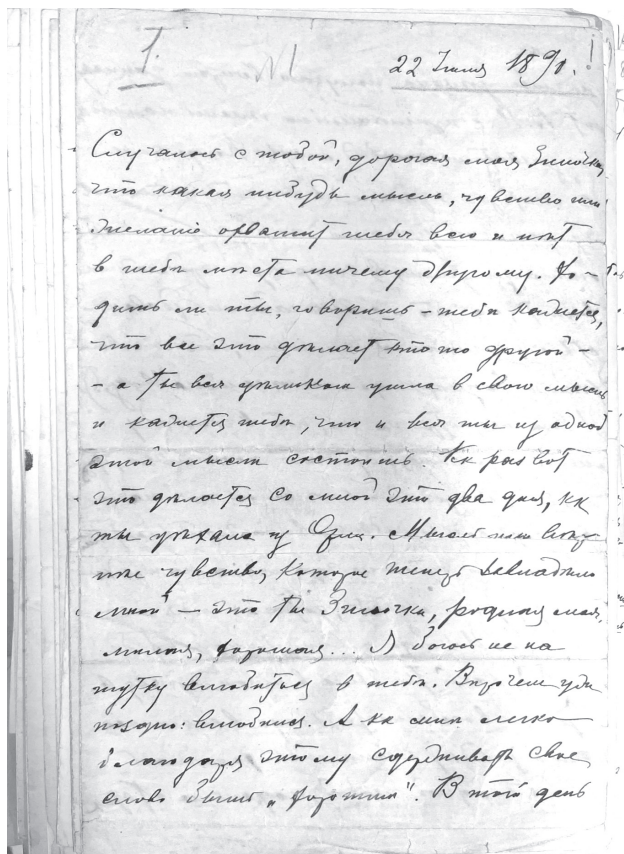 1.
22 Июля 1890.!
Случалось с тобой, дорогая моя Зиночка,
что какая нибудь мысль, чувство или
желание охватит тебя всю и нет
в тебе места ничему другому. Хо-
дишь ли ты, говоришь – тебе кажется,
что все это делает кто то другой –
– а ты вся целиком ушла в свою мысль
и кажется тебе, что и вся ты из одной
этой мысли состоишь. Так раз вот
это делается со мной это два дня, как
ты уехала из Орла. Мысль или
чувство, которое теперь завладело
мной – это ты Зиночка, родная моя,
милая, хорошая... Я боюсь не на
шутку влюбиться в тебя. Впрочем уж
поздно: влюбился. А как мне легко
благодаря этому сдерживать свое
слово быть „хорошим“. В тот день